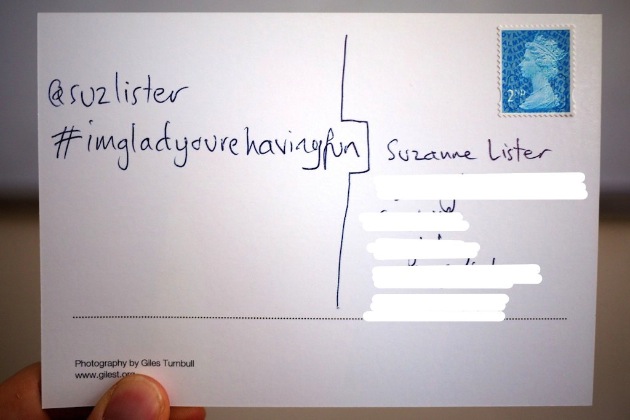 @suzlister
#imgladyourehavingfun
Suzanne Lister
2ND
Photography by Giles Turnbull
www.gilest.org